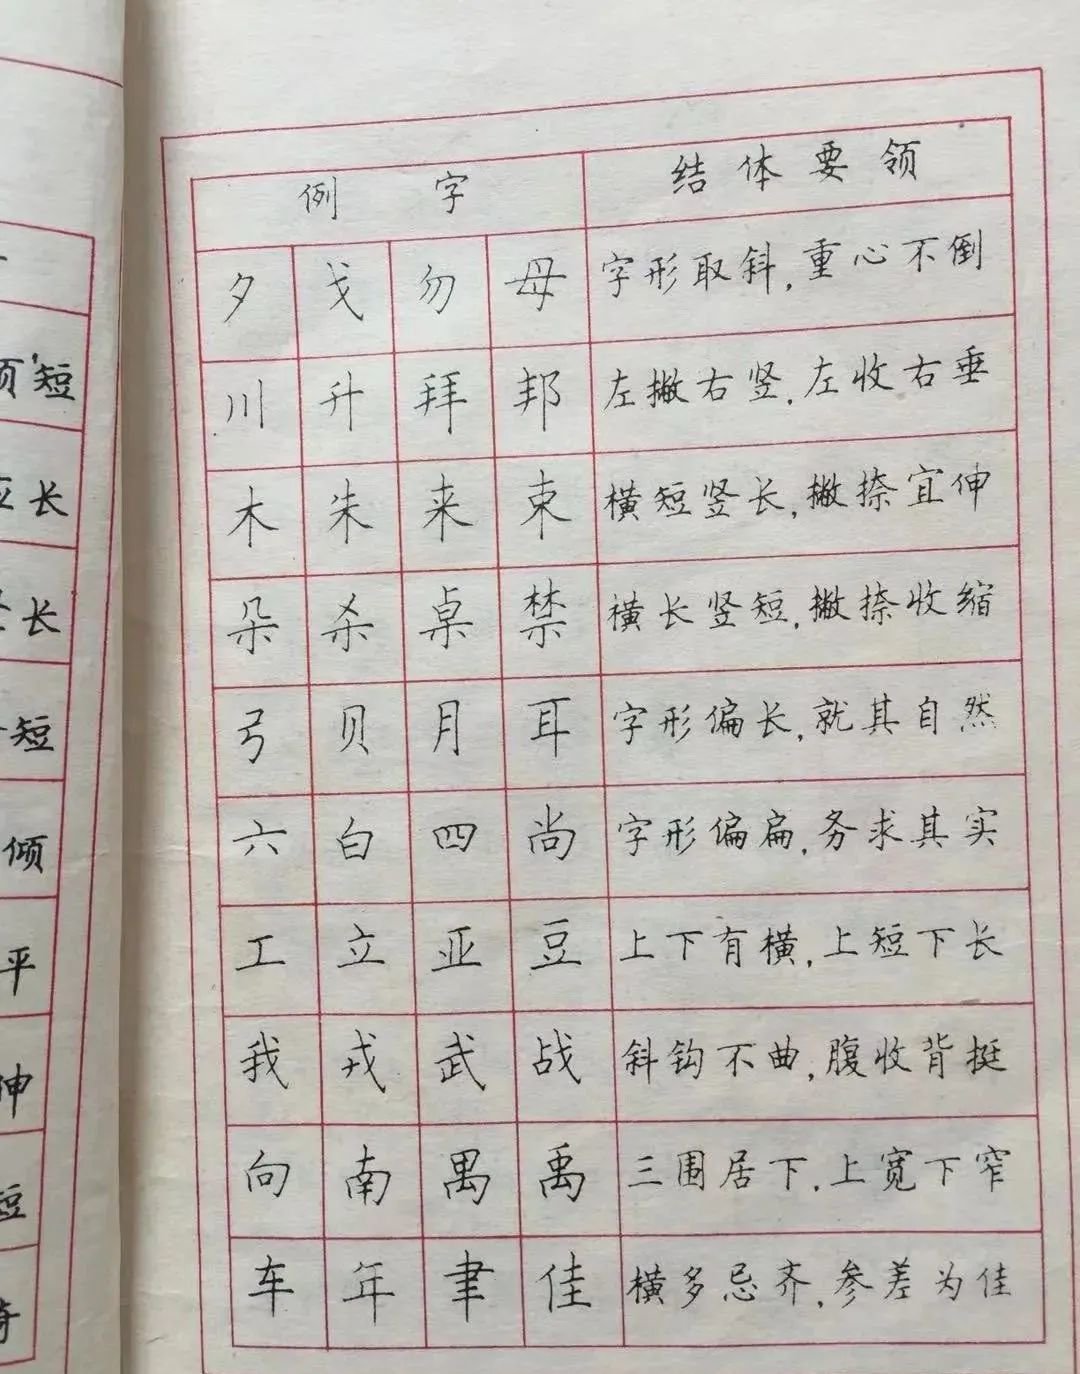 顷短
长
长
短
倾
平
伸
短
例字 结体要领
夕 戈 勿 母 字形取斜,重心不倒
川 升 拜 邦 左撇右竖,左收右垂
木 朱 来 束 横短竖长,撇捺宜伸
朵 杀 桌 禁 横长竖短,撇捺收缩
弓 贝 月 耳 字形偏长,就其自然
六 白 四 尚 字形偏扁,务求其实
工 立 亚 豆 上下有横,上短下长
我 戎 武 战 斜钩不曲,腹收背挺
向 南 禺 禹 三围居下,上宽下窄
车 年 聿 佳 横多忌齐,参差为佳